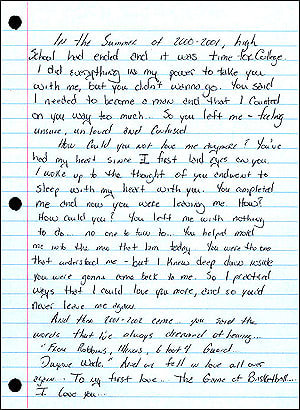 In the Summer of 2000-2001, high
School had ended and it was time for College.
I did everything in my power to take you
with me, but you didn't wanna go. You said
I needed to become a man and that I counted
on you way too much... So you left me - feeling
unsure, un loved and confused
How could you not love me anymore? You've
had my heart since I first laid eyes on you.
I woke up to the thought of you and went to
sleep with my heart with you. You completed
me and now you were leaving me. How?
How could you? You left me with nothing
to do... no one to turn to... You helped mold
me into the man that I am today. You were the one
that understood me - but I knew deep down inside
you were gonna come back to me. So I practiced
ways that I could love you more, and so you'd
never leave me again.
And then 2001-2002 came... you said the
words that I've always dreamed of hearing...
"From Robbins, Illinois, 6 foot 4 Guard
Dwyane Wade." And we fell in love all over
again. To my first love... The Game of Basketball...
I Love you...